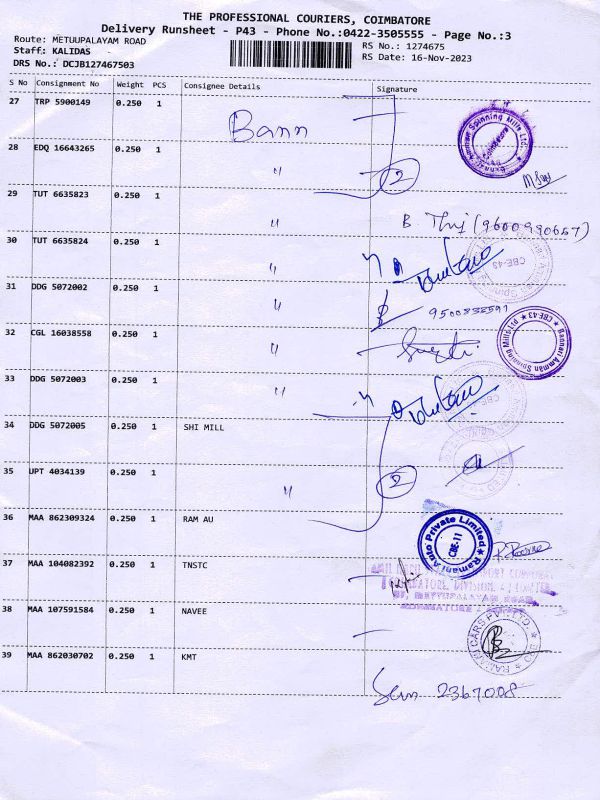 THE PROFESSIONAL COURIERS, COIMBATORE
Delivery Runsheet - P43 - Phone No.:0422-3505555 - Page No.:3
Route: METUUPALAYAM ROAD
RS No.: 1274675
Staff: KALIDAS
RS Date: 16-Nov-2023
DRS No.: DCJB127467503
S No Consignment No Weight PCS Consignee Details Signature
27 TRP 5900149 0.250 1 Bann
Bannari Amman Spinning Mills Ltd.
28 EDQ 16643265 0.250 1 " 2
29 TUT 6635823 0.250 1 " B. Thj (9600990667)
30 TUT 6635824 0.250 1 "
CBE-43
31 DDG 5072002 0.250 1 " 9500838597
32 CGL 16038558 0.250 1 "
Bannari Amman Spinning Mills Ltd ★ CBE-43 ★
33 DDG 5072003 0.250 1 "
34 DDG 5072005 0.250 1 SHI MILL
35 UPT 4034139 0.250 1 " 2
36 MAA 862309324 0.250 1 RAM AU
Ramani Auto Private Limited ★ CBE-11
37 MAA 104082392 0.250 1 TNSTC
38 MAA 107591584 0.250 1 NAVEE
39 MAA 862030702 0.250 1 KMT
2367008